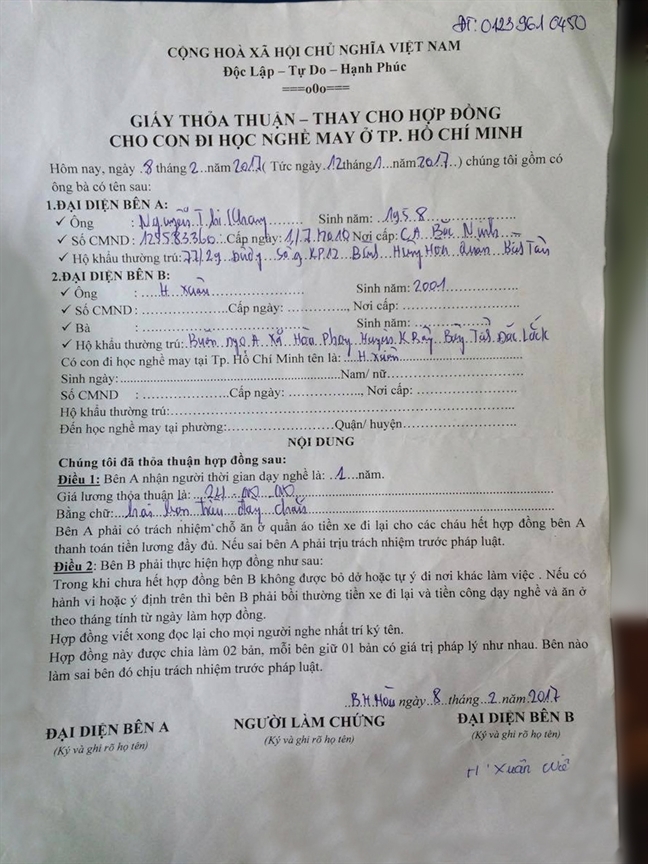 ĐT: 0123961 0450
CỘNG HOÀ XÃ HỘI CHỦ NGHĨA VIỆT NAM
Độc Lập – Tự Do – Hạnh Phúc
===o0o===
GIẤY THỎA THUẬN – THAY CHO HỢP ĐỒNG
CHO CON ĐI HỌC NGHỀ MAY Ở TP. HỒ CHÍ MINH
Hôm nay, ngày .8 tháng .2...năm 2017( Tức ngày .12tháng1....năm2017..) chúng tôi gồm có
ông bà có tên sau:
1.ĐẠI DIỆN BÊN A:
✓ Ông : Nguyễn Thị Sinh năm: 1958
✓ Số CMND : 125583360 Cấp ngày: 1/7/2010 Nơi cấp: C.A. Bắc Ninh
✓ Hộ khẩu thường trú: 77/29 Đường Số 9. KP12 Bình Hưng Hòa Quận Bình Tân
2.ĐẠI DIỆN BÊN B:
✓ Ông : H. Xuân Sinh năm: 2001
✓ Số CMND : Cấp ngày: , Nơi cấp:
✓ Bà : Sinh năm:
✓ Hộ khẩu thường trú: A. Xã Hòa Phong Huyện K Rông Bông Tỉnh Đắc Lắck
Có con đi học nghề may tại Tp. Hồ Chí Minh tên là: H. Xuân
Sinh ngày: Nam/ nữ
Số CMND : Cấp ngày: , Nơi cấp:
Hộ khẩu thường trú:
Đến học nghề may tại phường: Quận/ huyện
NỘI DUNG
Chúng tôi đã thỏa thuận hợp đồng sau:
Điều 1: Bên A nhận người thời gian dạy nghề là: .1...năm.
Giá lương thỏa thuận là:
Bằng chữ: hai bốn triệu chẵn
Bên A phải có trách nhiệm chỗ ăn ở quần áo tiền xe đi lại cho các cháu hết hợp đồng bên A
thanh toán tiền lương đầy đủ. Nếu sai bên A phải trịu trách nhiệm trước pháp luật.
Điều 2: Bên B phải thực hiện hợp đồng như sau:
Trong khi chưa hết hợp đồng bên B không được bỏ dở hoặc tự ý đi nơi khác làm việc . Nếu có
hành vi hoặc ý định trên thì bên B phải bồi thường tiền xe đi lại và tiền công dạy nghề và ăn ở
theo tháng tính từ ngày làm hợp đồng.
Hợp đồng viết xong đọc lại cho mọi người nghe nhất trí ký tên.
Hợp đồng này được chia làm 02 bản, mỗi bên giữ 01 bản có giá trị pháp lý như nhau. Bên nào
làm sai bên đó chịu trách nhiệm trước pháp luật.
B.H.Hòa ngày 8 tháng 2 năm 2017
ĐẠI DIỆN BÊN A NGƯỜI LÀM CHỨNG ĐẠI DIỆN BÊN B
(Ký và ghi rõ họ tên) (Ký và ghi rõ họ tên) (Ký và ghi rõ họ tên)
H' Xuân